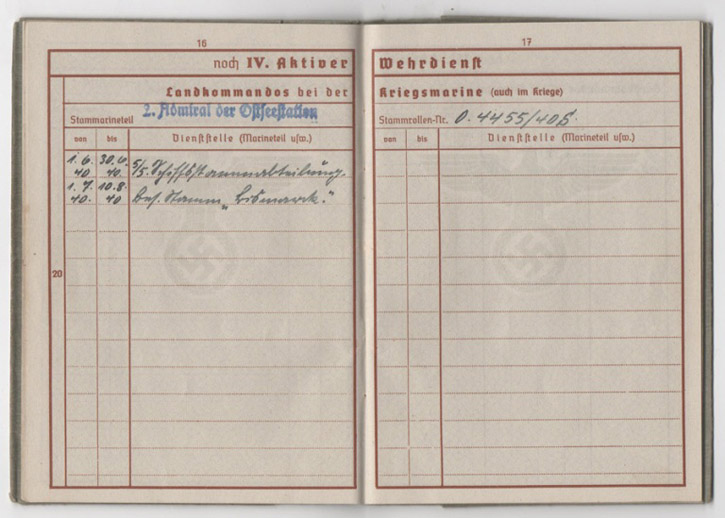 16
noch IV. Aktiver
Landkommandos bei der
Stammarineteil 2. Admiral der Ostseestation
von bis Dienststelle (Marineteil usw.)
1.6. 30.6.
40 40. 5/5. Schiffsstammabteilung.
1.7. 10.8.
40. 40 Bes. Stamm „Bismarck."
20
17
Wehrdienst
Kriegsmarine (auch im Kriege)
Stammrollen-Nr. O. 4455/40S.
von bis Dienststelle (Marineteil usw.)